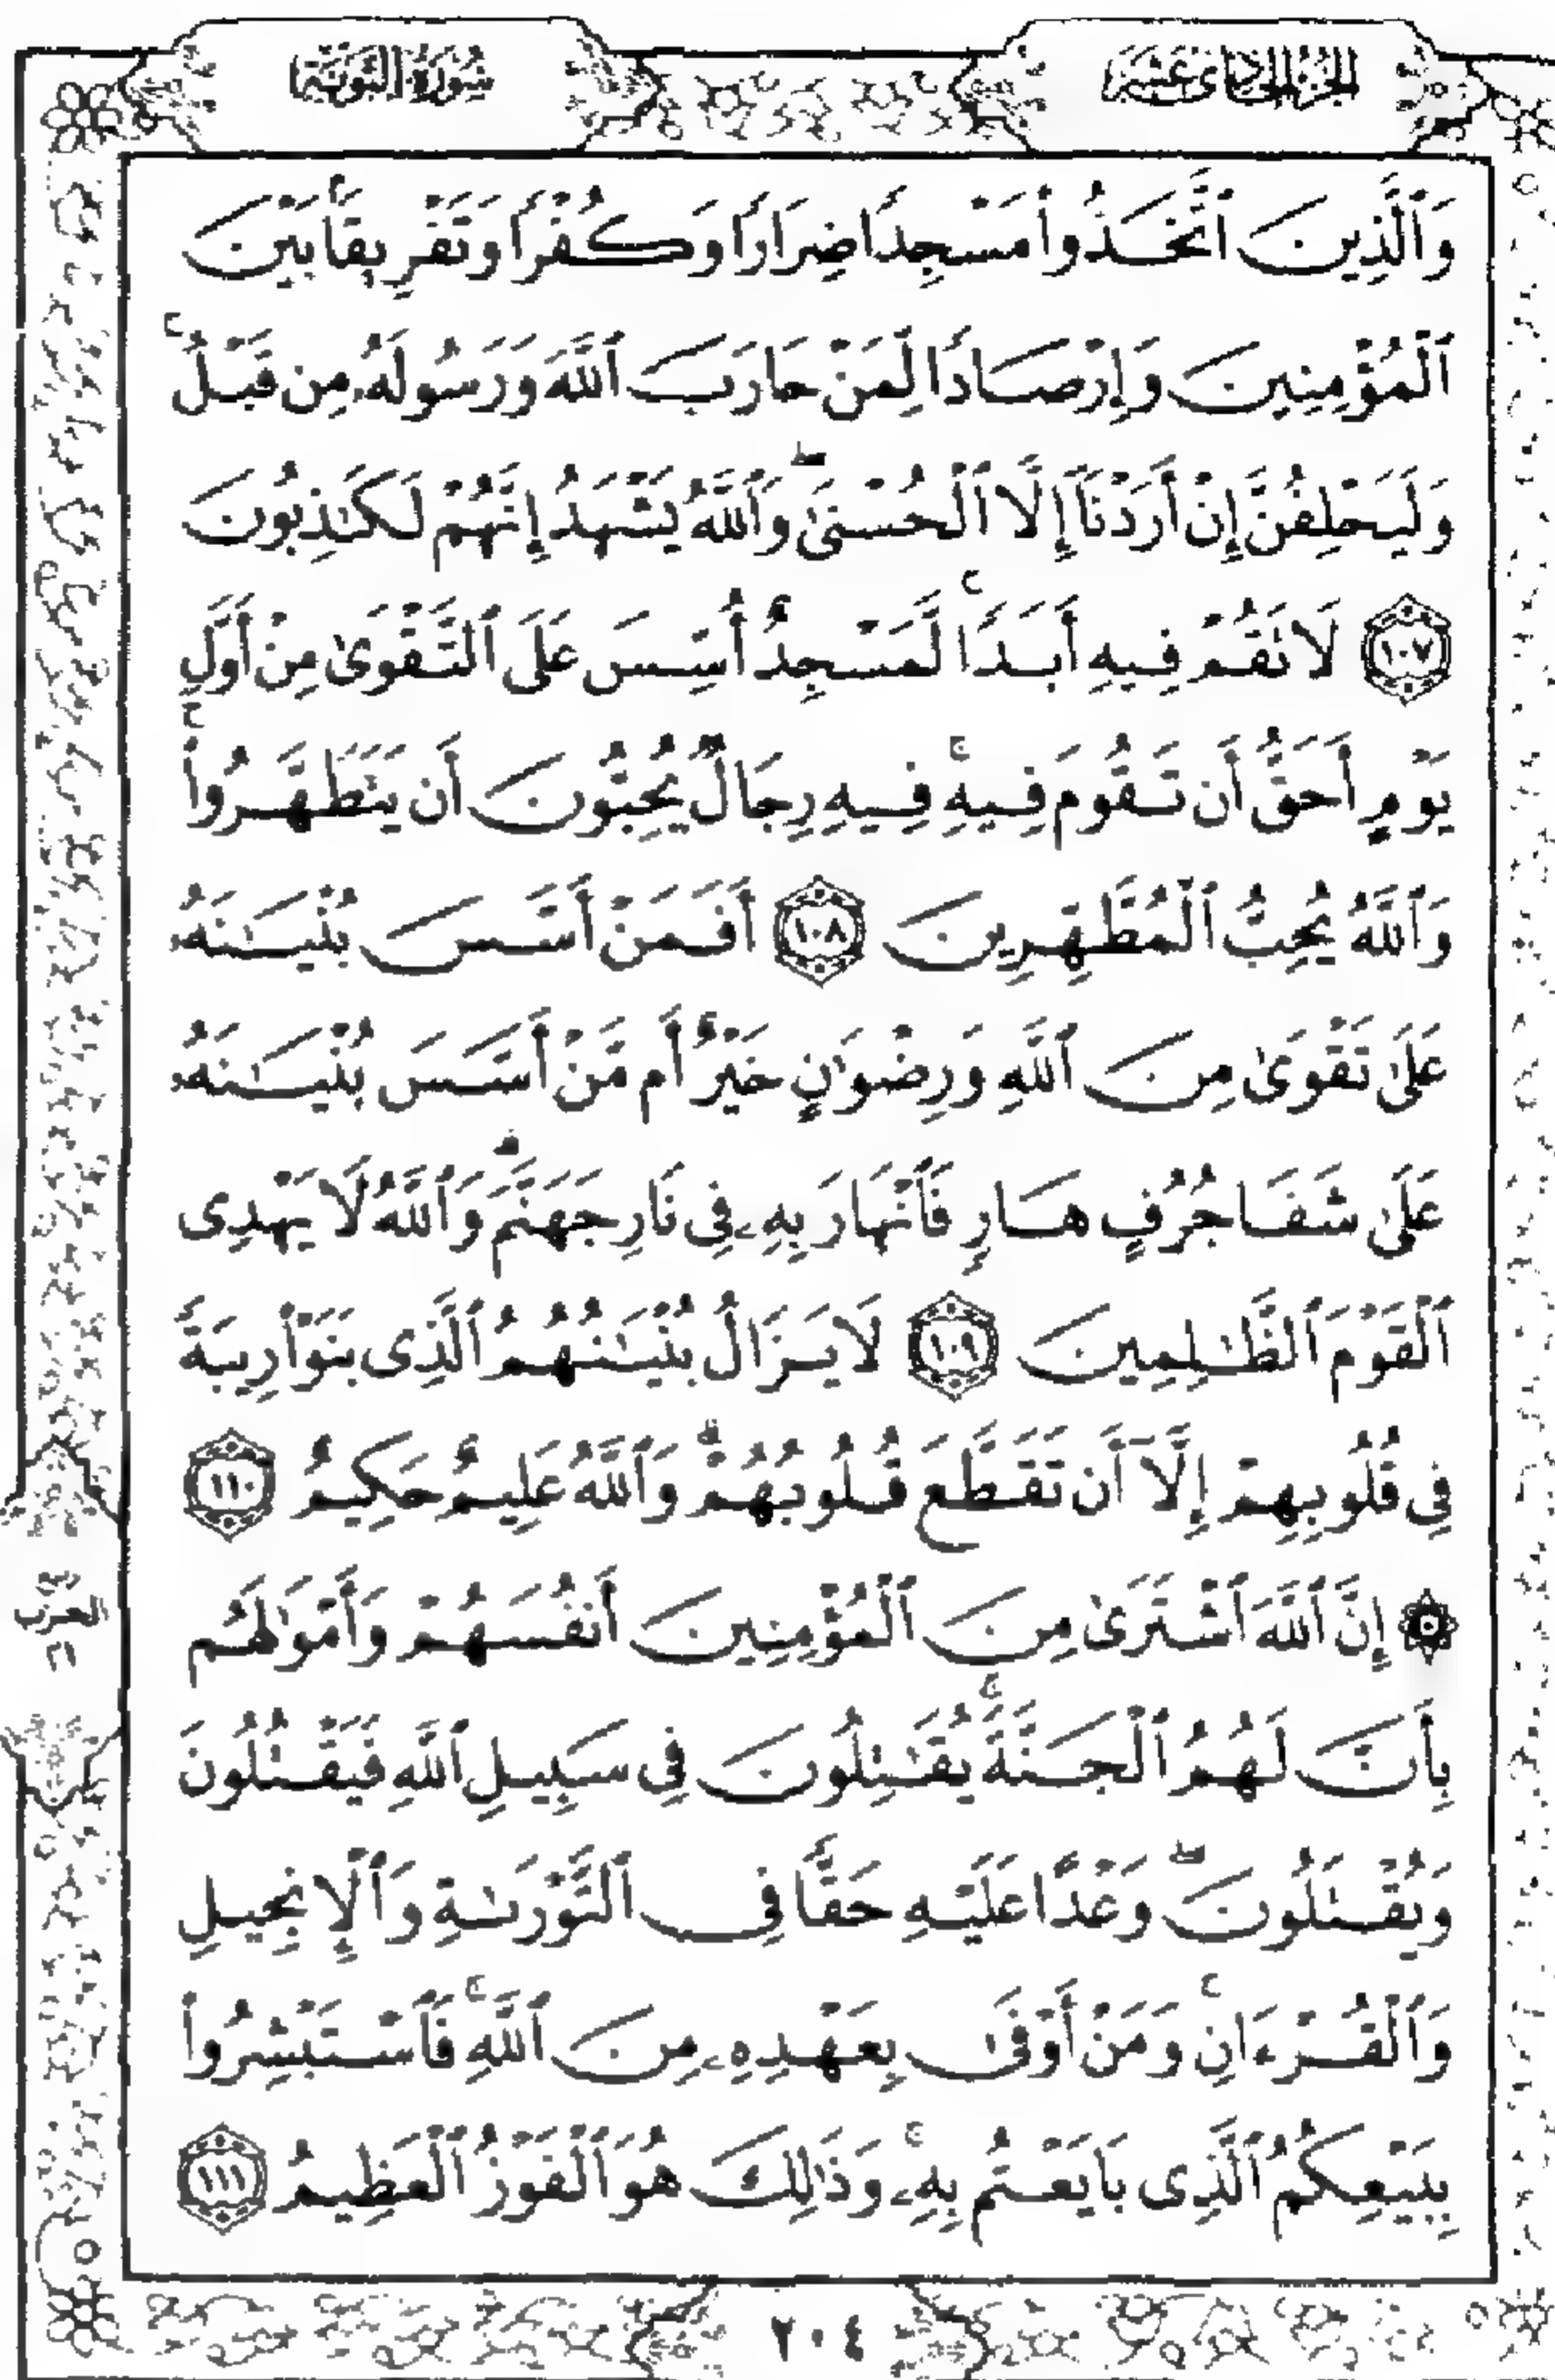 الجزء الحادي عشر
سورة التوبة
وَٱلَّذِينَ ٱتَّخَذُوا۟ مَسْجِدًا ضِرَارًا وَكُفْرًا وَتَفْرِيقًۢا بَيْنَ
ٱلْمُؤْمِنِينَ وَإِرْصَادًا لِّمَنْ حَارَبَ ٱللَّهَ وَرَسُولَهُۥ مِن قَبْلُ ۚ
وَلَيَحْلِفُنَّ إِنْ أَرَدْنَآ إِلَّا ٱلْحُسْنَىٰ ۖ وَٱللَّهُ يَشْهَدُ إِنَّهُمْ لَكَـٰذِبُونَ
١٠٧ لَا تَقُمْ فِيهِ أَبَدًا ۚ لَّمَسْجِدٌ أُسِّسَ عَلَى ٱلتَّقْوَىٰ مِنْ أَوَّلِ
يَوْمٍ أَحَقُّ أَن تَقُومَ فِيهِ ۚ فِيهِ رِجَالٌ يُحِبُّونَ أَن يَتَطَهَّرُوا۟ ۚ
وَٱللَّهُ يُحِبُّ ٱلْمُطَّهِّرِينَ ١٠٨ أَفَمَنْ أَسَّسَ بُنْيَـٰنَهُۥ
عَلَىٰ تَقْوَىٰ مِنَ ٱللَّهِ وَرِضْوَٰنٍ خَيْرٌ أَم مَّنْ أَسَّسَ بُنْيَـٰنَهُۥ
عَلَىٰ شَفَا جُرُفٍ هَارٍ فَٱنْهَارَ بِهِۦ فِى نَارِ جَهَنَّمَ ۗ وَٱللَّهُ لَا يَهْدِى
ٱلْقَوْمَ ٱلظَّـٰلِمِينَ ١٠٩ لَا يَزَالُ بُنْيَـٰنُهُمُ ٱلَّذِى بَنَوْا۟ رِيبَةً
فِى قُلُوبِهِمْ إِلَّآ أَن تَقَطَّعَ قُلُوبُهُمْ ۗ وَٱللَّهُ عَلِيمٌ حَكِيمٌ ١١٠
۞ إِنَّ ٱللَّهَ ٱشْتَرَىٰ مِنَ ٱلْمُؤْمِنِينَ أَنفُسَهُمْ وَأَمْوَٰلَهُم
بِأَنَّ لَهُمُ ٱلْجَنَّةَ ۚ يُقَـٰتِلُونَ فِى سَبِيلِ ٱللَّهِ فَيَقْتُلُونَ
وَيُقْتَلُونَ ۖ وَعْدًا عَلَيْهِ حَقًّا فِى ٱلتَّوْرَىٰةِ وَٱلْإِنجِيلِ
وَٱلْقُرْءَانِ ۚ وَمَنْ أَوْفَىٰ بِعَهْدِهِۦ مِنَ ٱللَّهِ ۚ فَٱسْتَبْشِرُوا۟
بِبَيْعِكُمُ ٱلَّذِى بَايَعْتُم بِهِۦ ۚ وَذَٰلِكَ هُوَ ٱلْفَوْزُ ٱلْعَظِيمُ ١١١
الحزب
٢٠٤